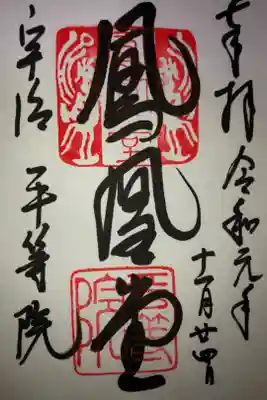 奉拝 令和元年
十一月廿四日
鳳凰堂
宇治 平等院